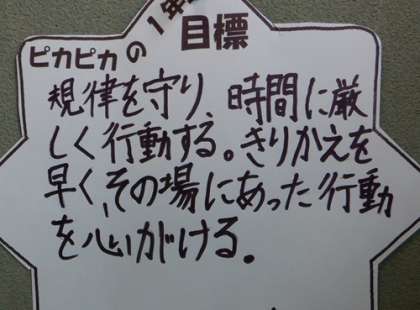 ピカピカの1年
目標
規律を守り、時間に厳
しく行動する。きりかえを
早く、その場にあった行動
を心がける。